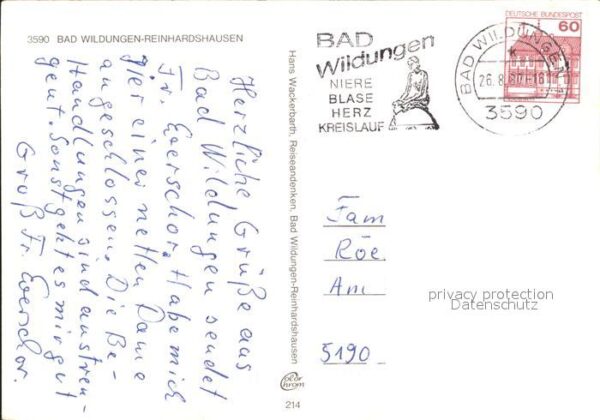 3590 BAD WILDUNGEN-REINHARDSHAUSEN
Herzliche Grüße aus
Bad Wildungen sendet
Fr. Everschor. Habe mich
hier einer netten Dame
angeschlossen. Die Be-
Handlungen sind anstren-
gent. Sonst geht es mir gut
Gruß Fr. Everschor.
Hans Wackerbarth, Reiseandenken, Bad Wildungen-Reinhardshausen
color
chrom
214
BAD
Wildungen
NIERE
BLASE
HERZ
KREISLAUF
BAD WILDUNGEN
26.8.
3590
DEUTSCHE BUNDESPOST
60
Fam
Röe.
Am
5190
privacy protection
Datenschutz